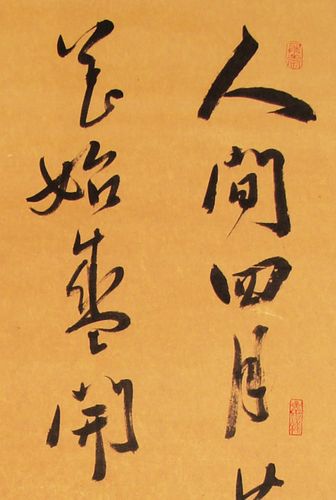 人間四月
花始盛開